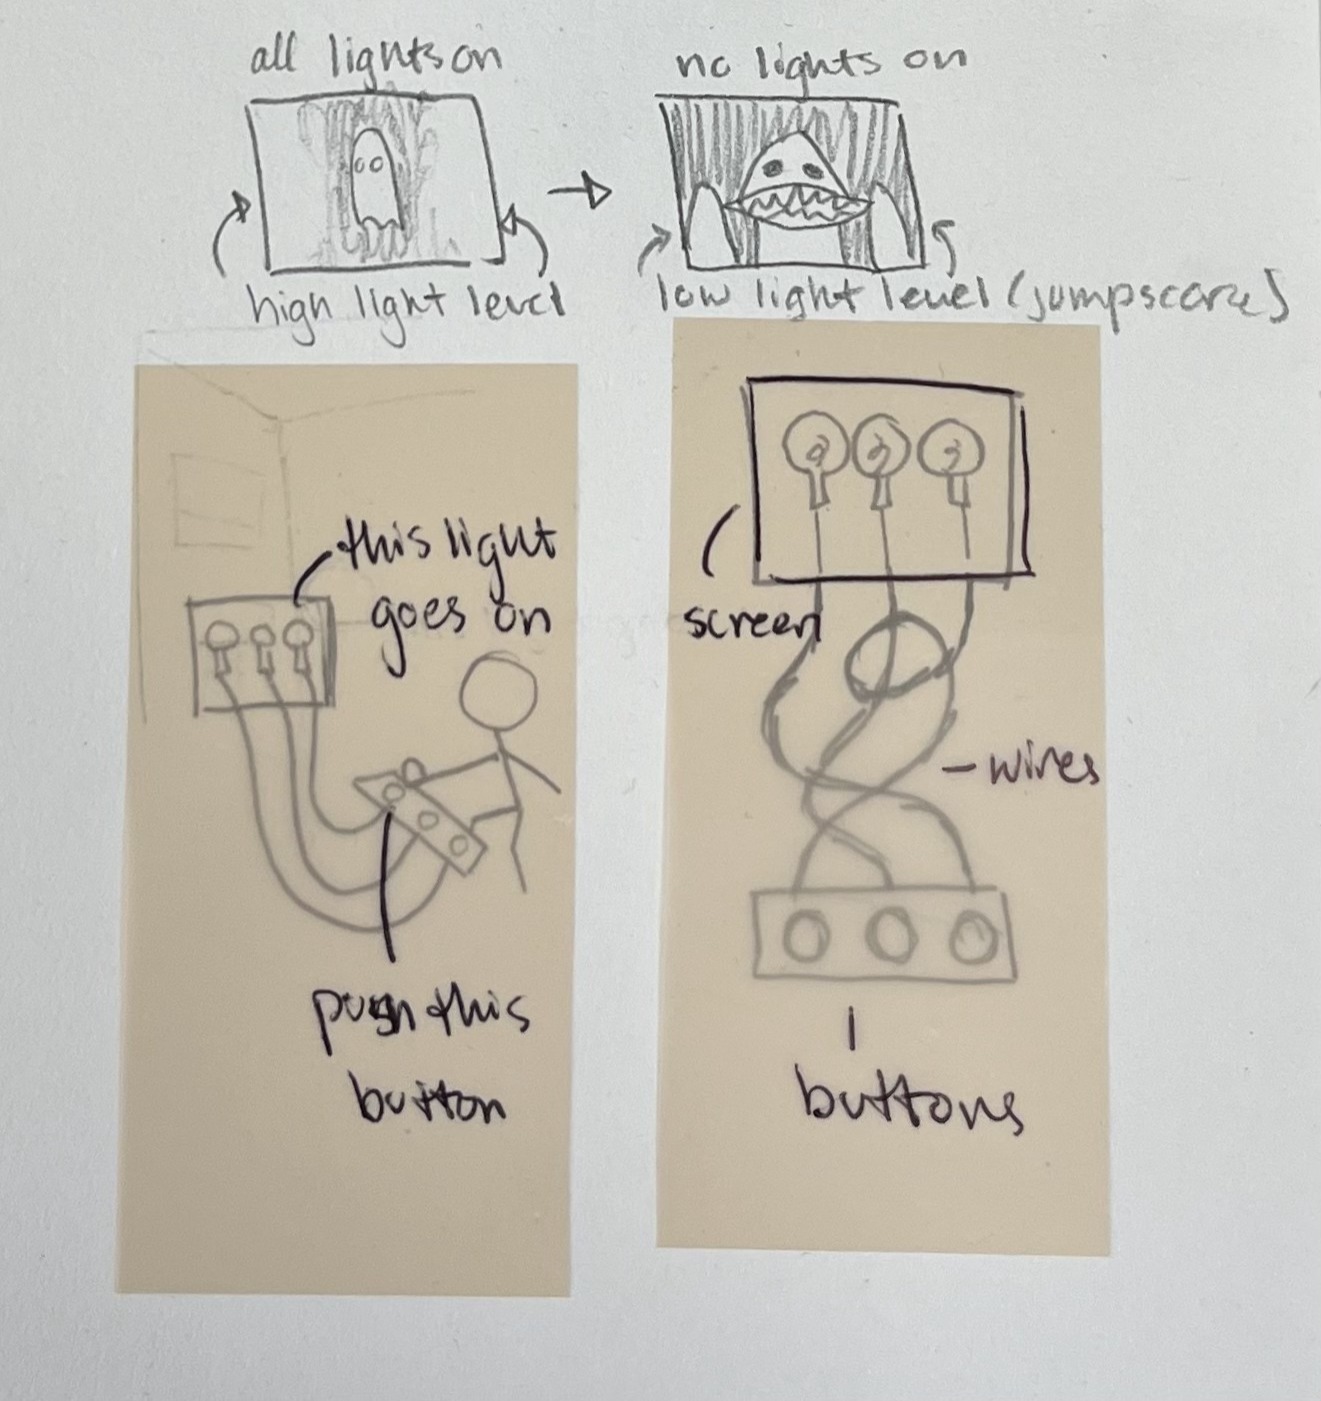 all lights on
no lights on
high light level
low light level (jumpscare)
this light
goes on
push this
button
screen
wires
buttons